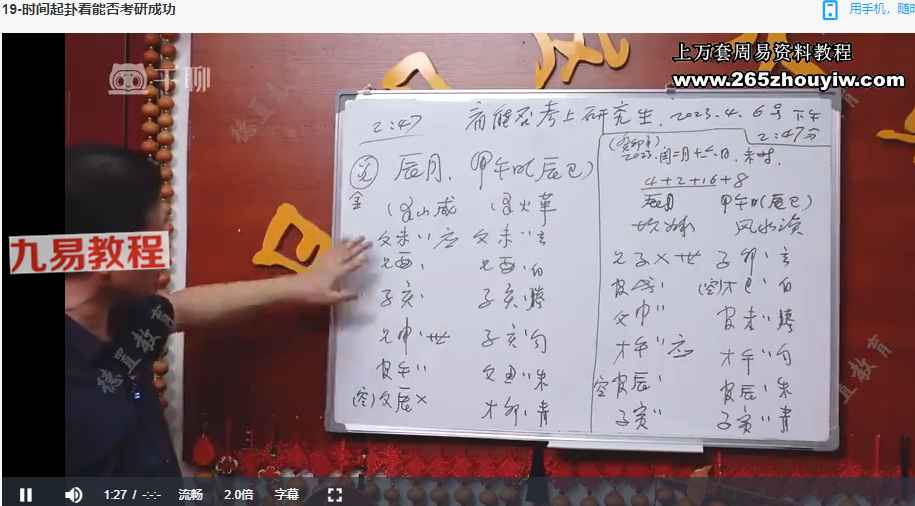 19-时间起卦看能否考研成功
用手机，随时
千聊
上万套周易资料教程
www.265zhouyiw.com
2:47 看能否考上研究生. 2023.4.6号下午
2:47分
辰月. 甲午日(辰巳)
2023.闰二月十六日. 未时.
金
4+2+16+8
辰月 甲午日(辰巳)
泽山咸 泽火革
坎为水 风水涣
父未〃应 父未〃玄
兄子×世 子卯、玄
兄酉、 兄酉、白
子亥、 子亥、螣
兄申、世 子亥、勾
才午〃应 才午〃勾
父丑〃朱
官辰、 官辰、朱
(空)父辰× 才卯、青
子寅〃 子寅〃青
九易教程
德置教育
1:27 / -:-:- 流畅 2.0倍 字幕